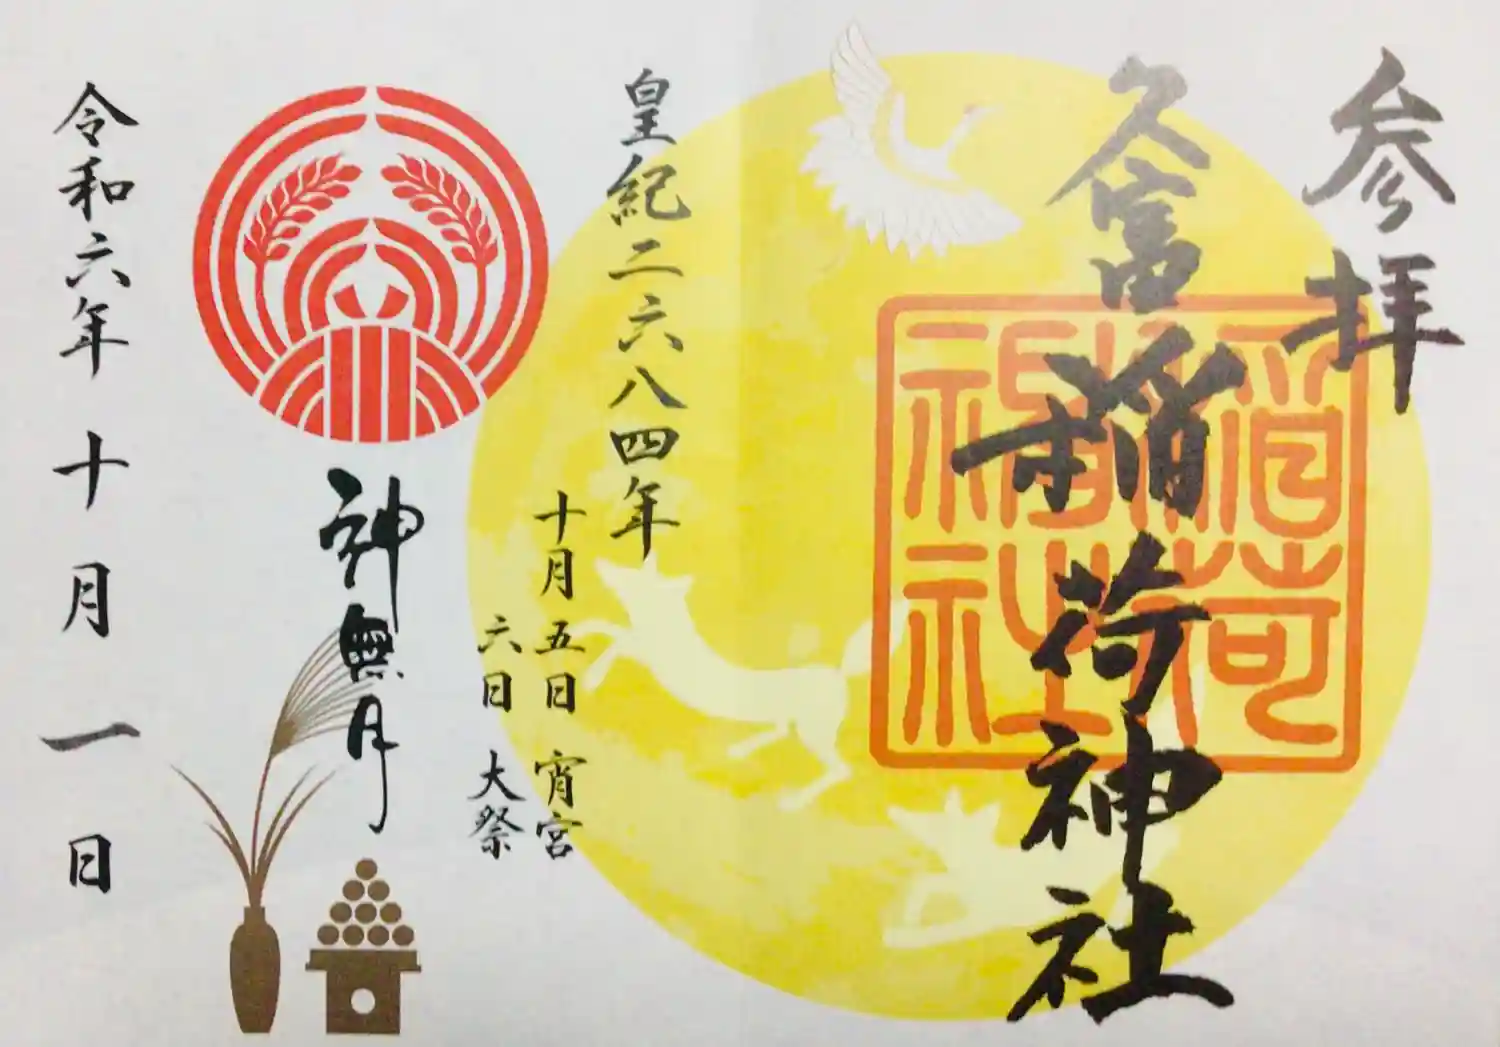 参拝
久富稲荷神社
稲荷
神社
皇紀二六八四年
十月 五日 宵宮
六日 大祭
神無月
令和六年 十月 一日